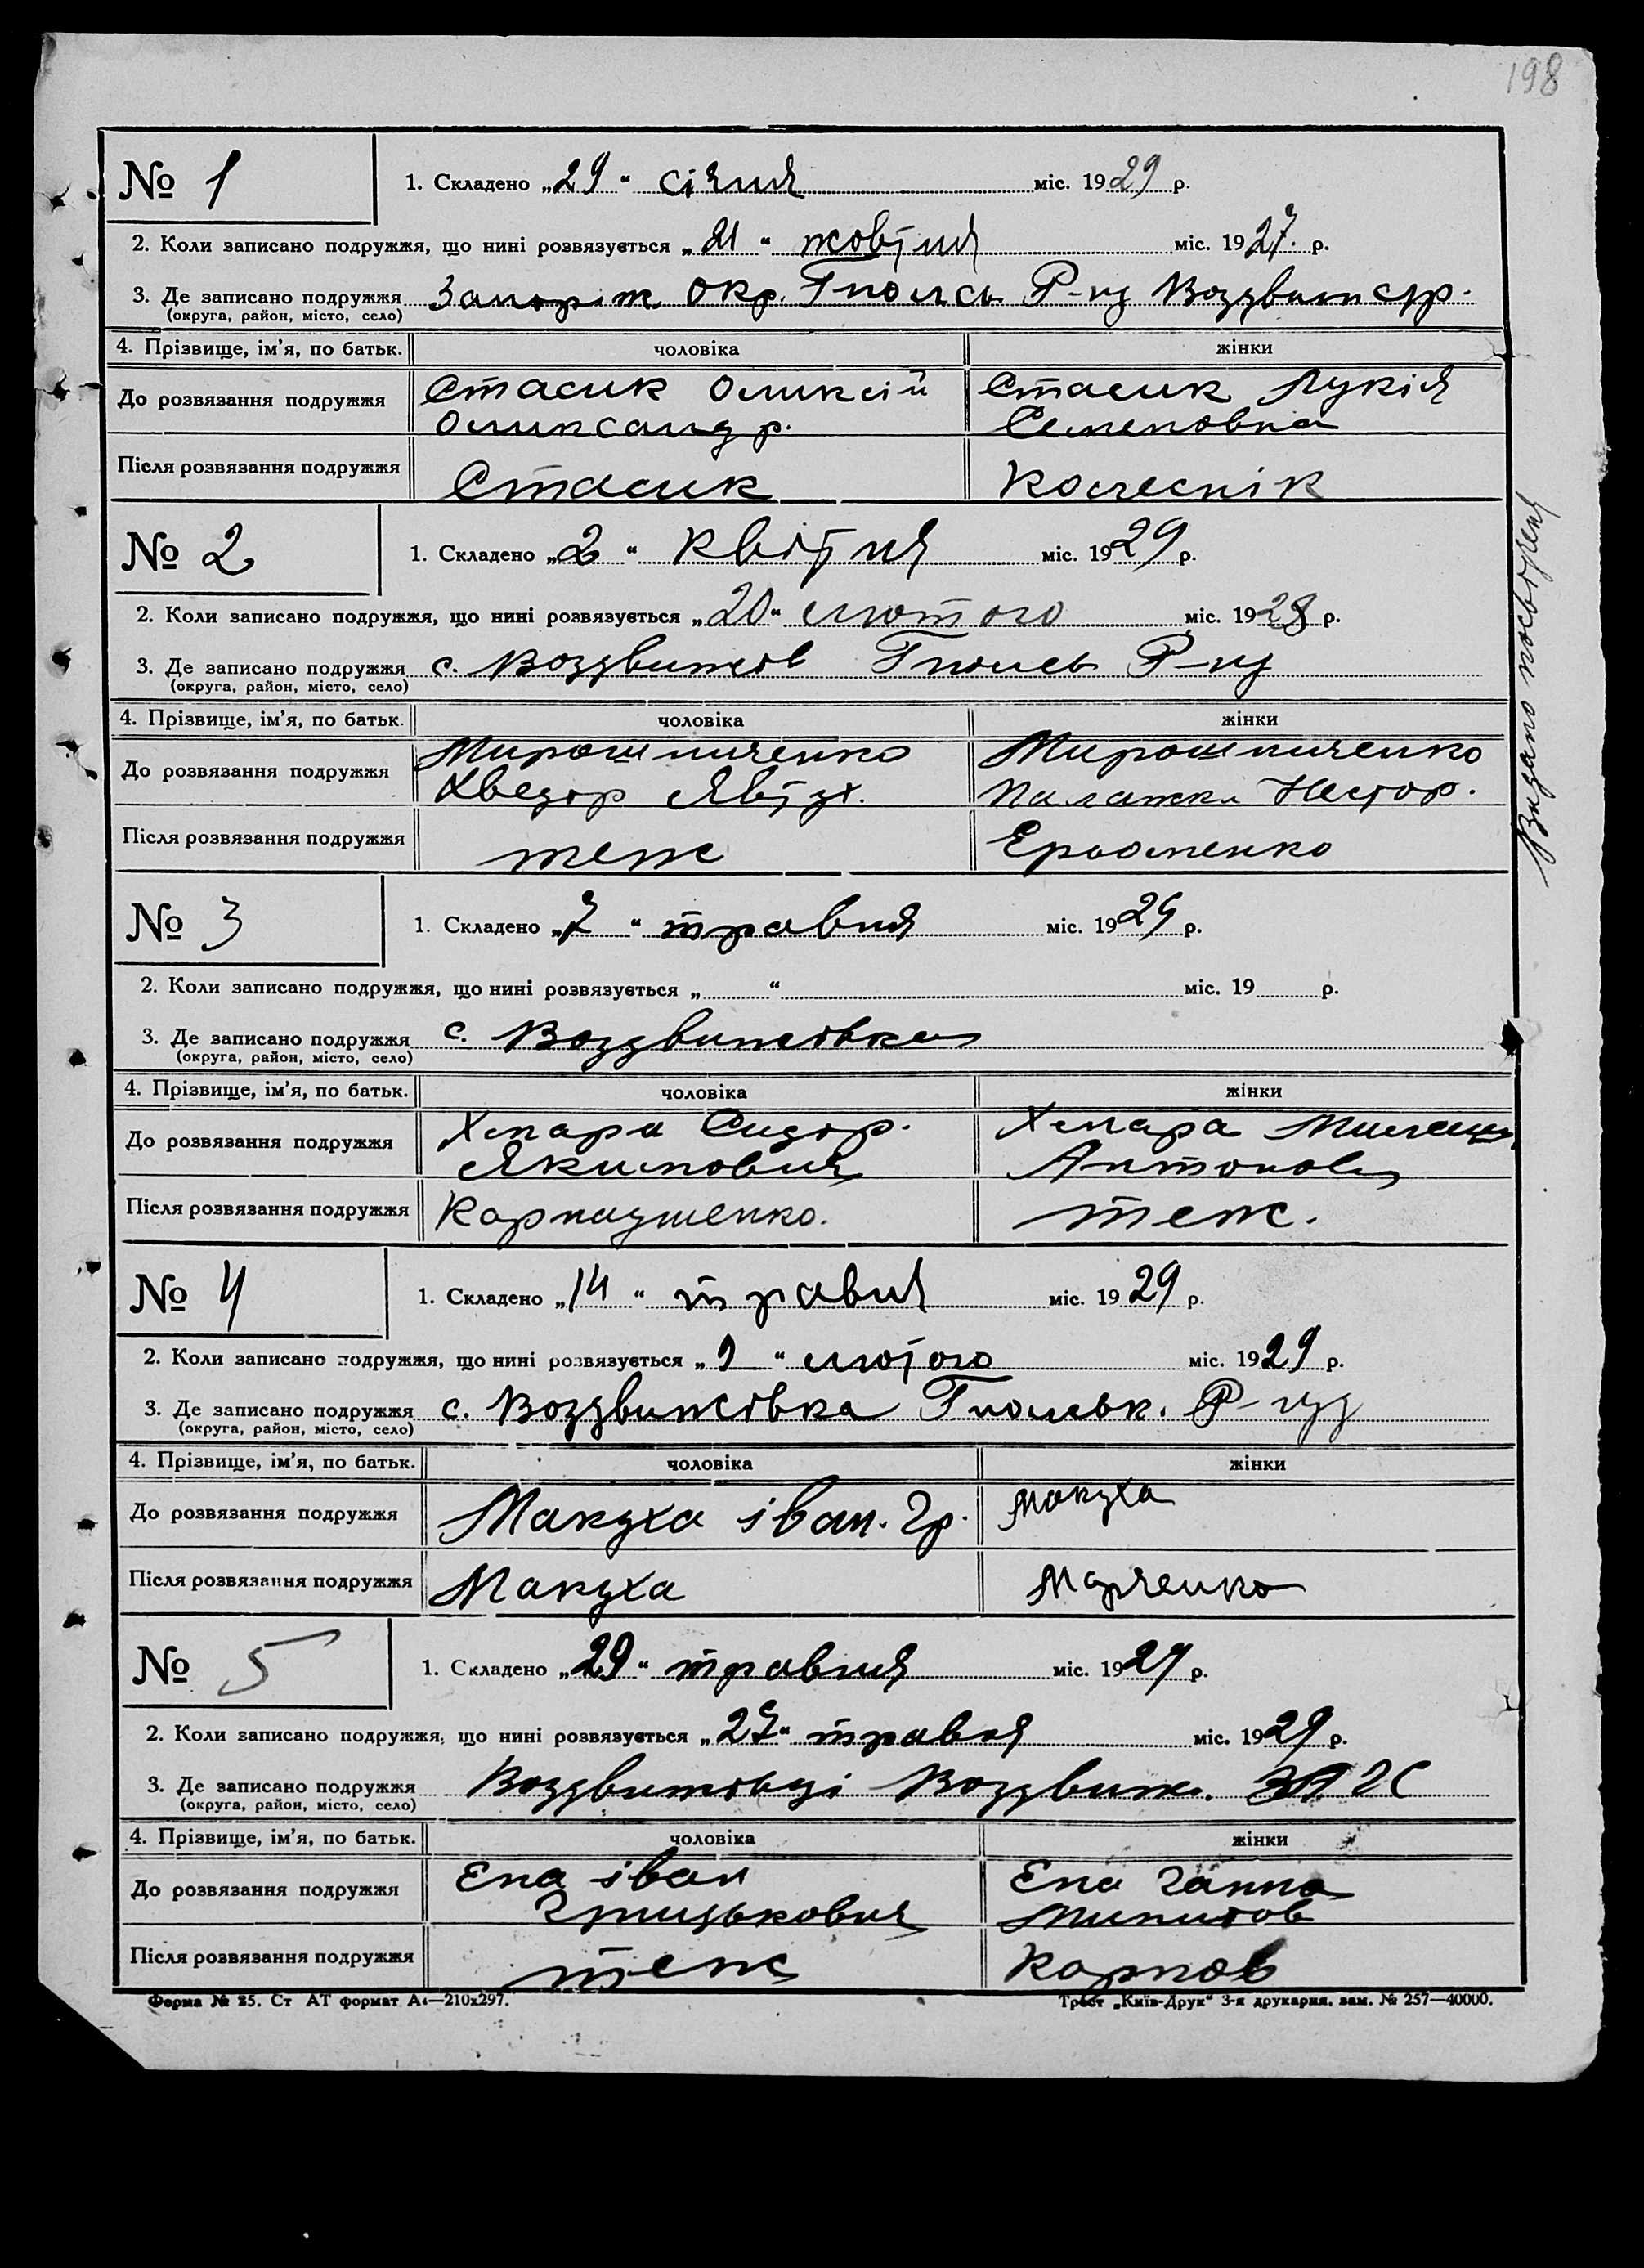 198
№ 1
1. Складено „29“ січня міс. 1929 р.
2. Коли записано подружжя, що нині розвязується „21“ жовтня міс. 1927 р.
3. Де записано подружжя Запоріж. Окр. Гполсь Р-ну Воздвиж
(округа, район, місто, село)
4. Прізвище, ім’я, по батьк. чоловіка жінки
До розвязання подружжя Стасик Оликсій Стасик Лукія
Оликсандр. Семеновна
Після розвязання подружжя Стасик Колеснік
№ 2
1. Складено „2“ квітня міс. 1929 р.
2. Коли записано подружжя, що нині розвязується „20“ лютого міс. 1928 р.
3. Де записано подружжя с. Воздвижів Гполсь Р-ну
(округа, район, місто, село)
4. Прізвище, ім’я, по батьк. чоловіка жінки
До розвязання подружжя Мирошниченко Мирошниченко
Хведор Явтух. Палажка Нестор.
Після розвязання подружжя теж Ерьоменко
Видано посвідченя
№ 3
1. Складено „7“ травня міс. 1929 р.
2. Коли записано подружжя, що нині розвязується „ “ міс. 19 р.
3. Де записано подружжя с. Воздвижівка
(округа, район, місто, село)
4. Прізвище, ім’я, по батьк. чоловіка жінки
До розвязання подружжя Хмара Сидор. Хмара
Якимович Антонов
Після розвязання подружжя Карнаушенко. теж.
№ 4
1. Складено „14“ травня міс. 1929 р.
2. Коли записано подружжя, що нині розвязується „9“ лютого міс. 1929 р.
3. Де записано подружжя с. Воздвижівка Гпольськ. Р-ну
(округа, район, місто, село)
4. Прізвище, ім’я, по батьк. чоловіка жінки
До розвязання подружжя Макуха іван. Гр. Макуха
Після розвязання подружжя Макуха Марченко
№ 5
1. Складено „29“ травня міс. 1929 р.
2. Коли записано подружжя, що нині розвязується „27“ травня міс. 1929 р.
3. Де записано подружжя Воздвижівці Воздвиж. ЗАГС
(округа, район, місто, село)
4. Прізвище, ім’я, по батьк. чоловіка жінки
До розвязання подружжя Епа іван Епа Ганна
Грицькович Микитов
Після розвязання подружжя теж Карпов
Форма № 25. Ст АТ формат А4—210х297. Трест „Київ-Друк“ 3-я друкарня, зам. № 257—40000.